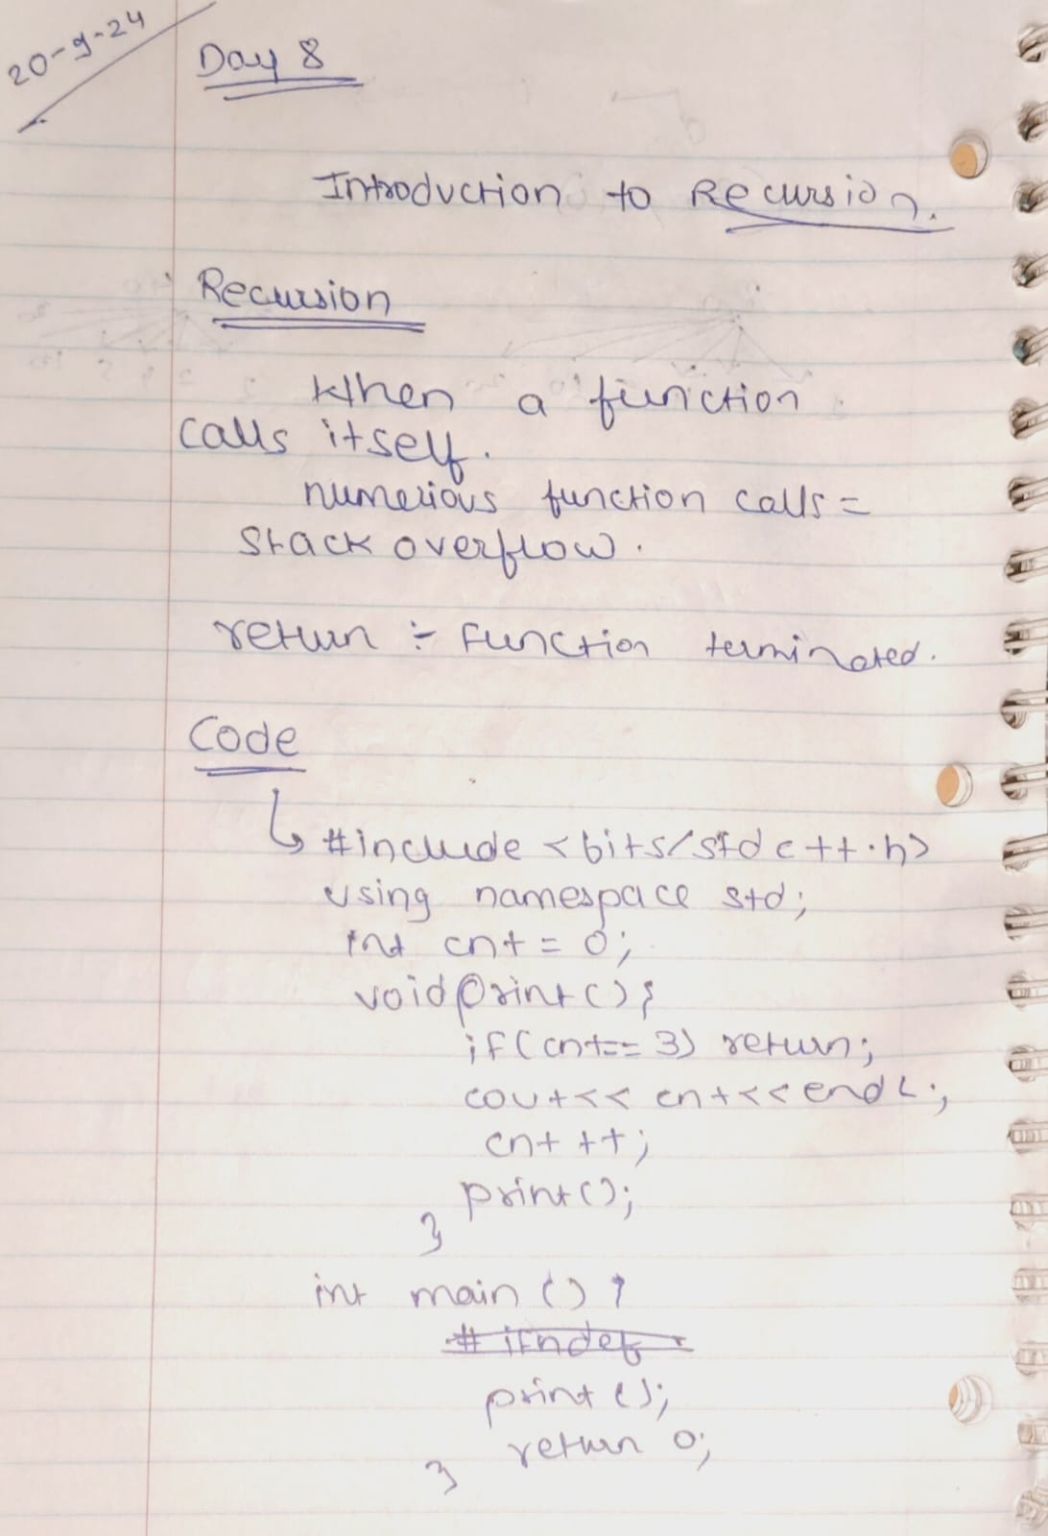 20-9-24
Day 8
Introduction to Recursion.
Recursion
When a function
calls itself.
numerious function calls =
Stack overflow.
return :- Function terminated.
Code
↳ #include <bits/stdc++.h>
using namespace std;
int cnt = 0;
void print(){
if(cnt== 3) return;
cout<< cnt<<endl;
cnt ++;
print();
}
int main () {
# ifndef
print ();
return 0;
}